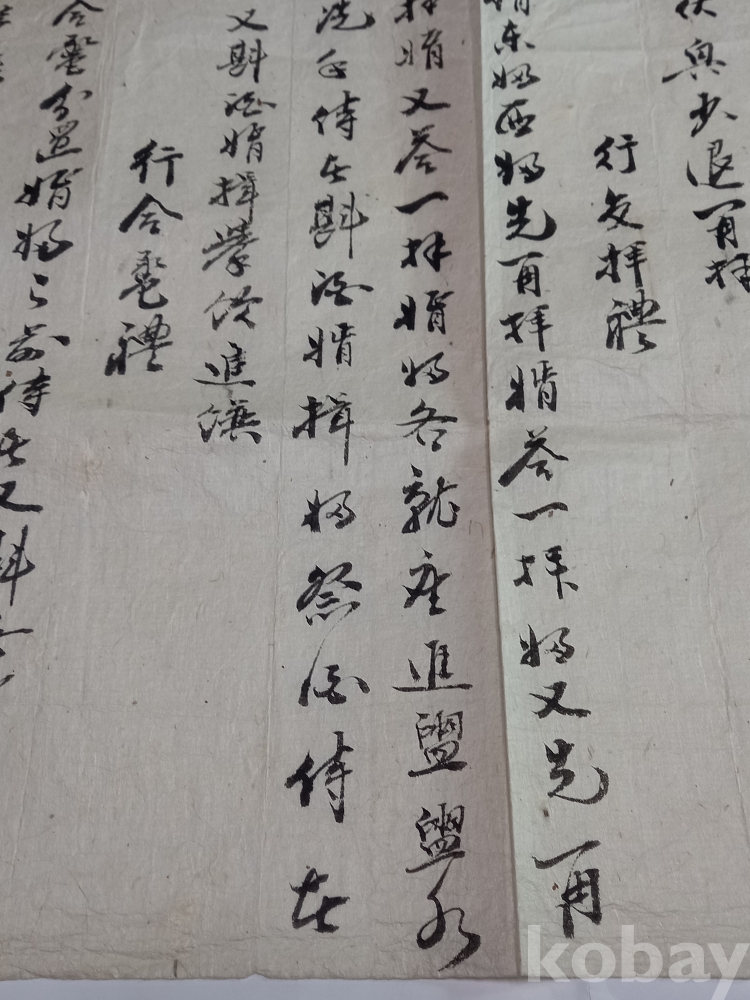 伏興少退再拜
行交拜禮
婿東婦西婦先再拜婿答一拜婦又先再
拜婿又答一拜婿婦各就座進盥盥水
洗手侍者斟酒婿揖婦祭酒侍者
又斟酒婿揖擧飮進饌
行合巹禮
合巹分置婿婦之前侍者又斟
kobay